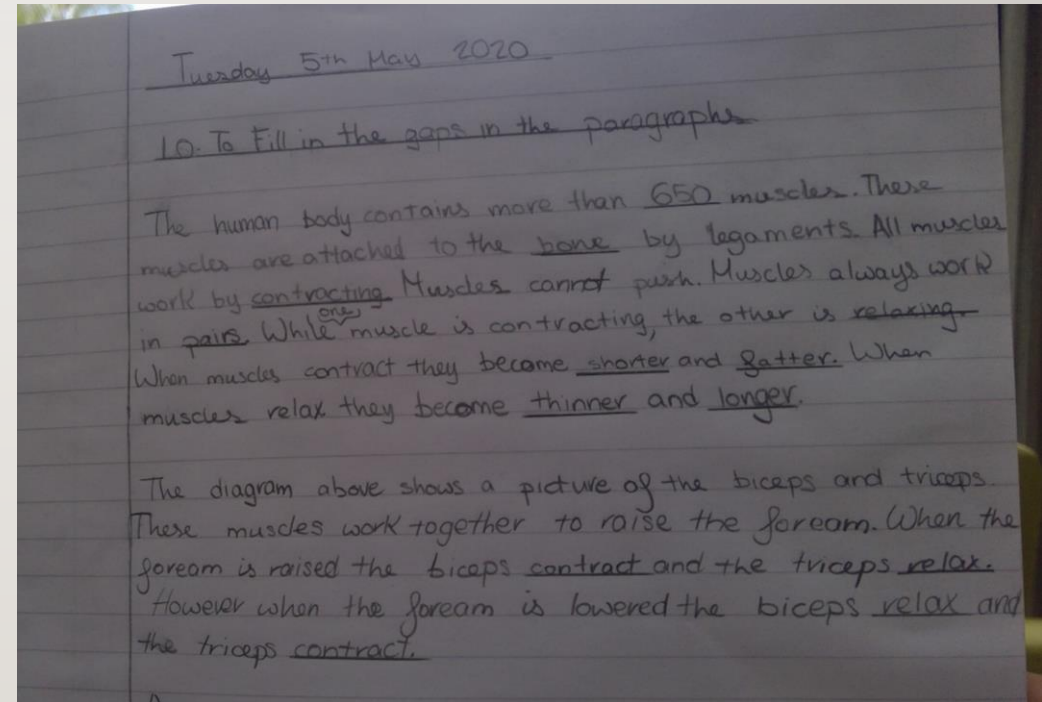 Tuesday 5th May 2020
LO. To Fill in the gaps in the paragraphs
The human body contains more than 650 muscles. These
muscles are attached to the bone by legaments. All muscles
work by contracting. Muscles cannot push. Muscles always work
in pairs. While one muscle is contracting, the other is relaxing.
When muscles contract they become shorter and fatter. When
muscles relax they become thinner and longer.
The diagram above shows a picture of the biceps and triceps.
These muscles work together to raise the foream. When the
foream is raised the biceps contract and the triceps relax.
However when the foream is lowered the biceps relax and
the triceps contract.